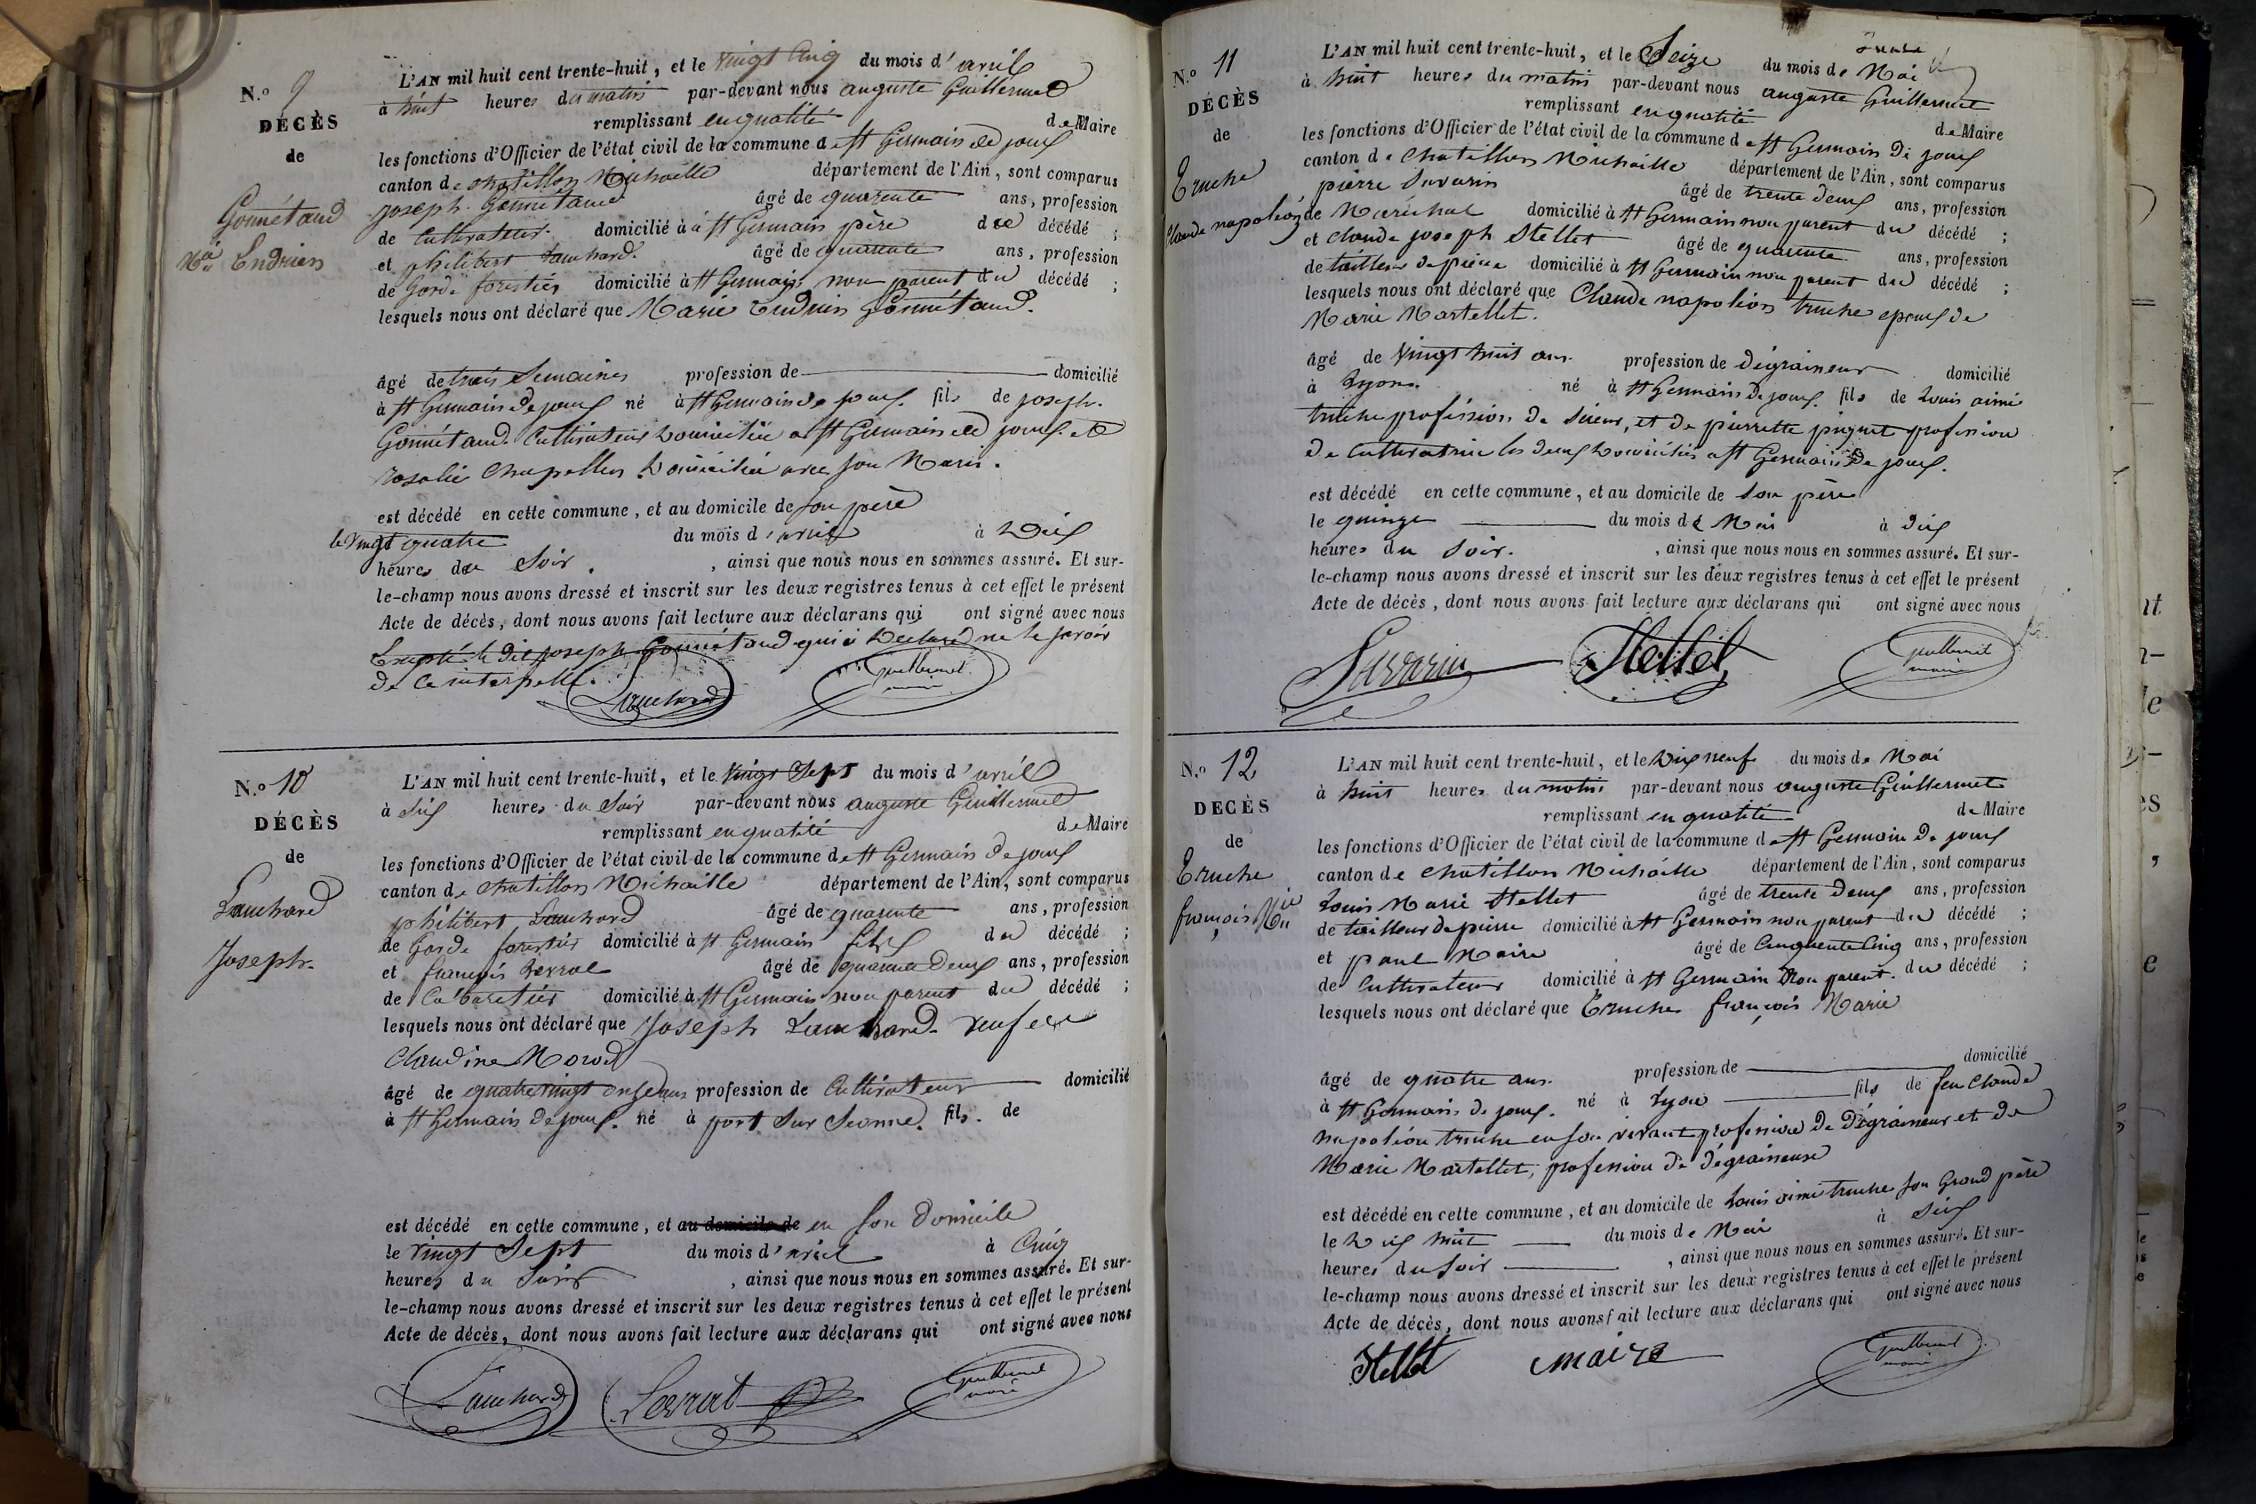 N.o 9
DÉCÈS
de
Gonnétand
Mie Endrien
L'AN mil huit cent trente-huit, et le vingt cinq du mois d'avril
à huit heures du matin par-devant nous auguste Guillermet
remplissant en qualité de Maire
les fonctions d'Officier de l'état civil de la commune de St Germain de joux
canton de chatillon Michaille département de l'Ain, sont comparus
joseph Gonnétand âgé de quarente ans, profession
de Cultivateur domicilié à a St Germain père du décédé ;
et philibert Lauchard âgé de quarente ans, profession
de Garde forestier domicilié à St Germain non parent du décédé ;
lesquels nous ont déclaré que Marie Endrien Gonnétand.
âgé de trois Semaines profession de domicilié
à St Germain de joux né à St Germain de joux. fils de joseph.
Gonnétand. Cultivateur Domicilié a St Germain de joux. et
rosalie Chapellu Domiciliée avec son Maris.
est décédé en cette commune, et au domicile de son père
le vingt quatre du mois d'avril à Dix
heures du Soir. , ainsi que nous nous en sommes assuré. Et sur-
le-champ nous avons dressé et inscrit sur les deux registres tenus à cet effet le présent
Acte de décès, dont nous avons fait lecture aux déclarans qui ont signé avec nous
Excepté le dit joseph Gonnétand qui a Declaré ne le savoir
De Ce interpellé.
Lauchard Guillermet maire
N.o 10
DÉCÈS
de
Lauchard
Joseph.
L'AN mil huit cent trente-huit, et le vingt Sept du mois d'avril
à Six heures du Soir par-devant nous auguste Guillermet
remplissant en qualité de Maire
les fonctions d'Officier de l'état civil de la commune de St Germain de joux
canton de chatillon Michaille département de l'Ain, sont comparus
philibert Lauchard âgé de quarente ans, profession
de Garde forestier domicilié à St Germain fils du décédé ;
et françois Serrat âgé de quarente Deux ans, profession
de Cabaretier domicilié à St Germain non parent du décédé ;
lesquels nous ont déclaré que Joseph Lauchard. veuf de
Claudine Morod
âgé de quatre vingt onze ans profession de Cultivateur domicilié
à St Germain de joux. né à port Sur Seonne. fils. de
est décédé en cette commune, et au domicile de en Son Domicile
le vingt Sept du mois d'avril à Cinq
heures du Soir , ainsi que nous nous en sommes assuré. Et sur-
le-champ nous avons dressé et inscrit sur les deux registres tenus à cet effet le présent
Acte de décès, dont nous avons fait lecture aux déclarans qui ont signé avec nous
Lauchard Serrat Guillermet maire
N.o 11
DÉCÈS
de
Truche
Claude napoléon
L'AN mil huit cent trente-huit, et le Seize du mois de Mai
à huit heures du matin par-devant nous auguste Guillermet
remplissant en qualité de Maire
les fonctions d'Officier de l'état civil de la commune de St Germain De joux
canton de Chatillon Michaille département de l'Ain, sont comparus
pierre Savarin âgé de trente deux ans, profession
de Maréchal domicilié à St Germain non parent du décédé ;
et Claude joseph Stellet âgé de quarente ans, profession
de tailleur de pierre domicilié à St Germain non parent du décédé ;
lesquels nous ont déclaré que Claude napoléon truche epoux de
Marie Martellet.
âgé de vingt huit ans. profession de dégraineur domicilié
à Lyon. né à St Germain De joux. fils de Louis aimé
truche profession. De Sieur, et De pierrette piquet profession
De Cultivatrice les deux Domiciliés a St Germain De joux.
est décédé en cette commune, et au domicile de Son père
le quinze du mois de Mai à dix
heures du Soir. , ainsi que nous nous en sommes assuré. Et sur-
le-champ nous avons dressé et inscrit sur les deux registres tenus à cet effet le présent
Acte de décès, dont nous avons fait lecture aux déclarans qui ont signé avec nous
Savarin Stellet Guillermet maire
N.o 12
DECÈS
de
Truche
françois Mie
L'AN mil huit cent trente-huit, et le Dix neuf du mois de Mai
à huit heures du matin par-devant nous auguste Guillermet
remplissant en qualité de Maire
les fonctions d'Officier de l'état civil de la commune de St Germain De joux
canton de Chatillon Michaille département de l'Ain, sont comparus
Louis Marie Stellet âgé de trente Deux ans, profession
de tailleur de pierre domicilié à St Germain non parent du décédé ;
et paul Maire âgé de Cinquente Cinq ans, profession
de Cultivateur domicilié à St Germain Non parent. du décédé ;
lesquels nous ont déclaré que Truche françois Marie
âgé de quatre ans. profession de domicilié
à St Germain de joux. né à Lyon fils de feu Claude
napoléon truche en Son vivant profession De Dégraineur et de
Marie Martellet, profession De dégraineuse
est décédé en cette commune, et au domicile de Louis aimé truche son Grand père
le Dix huit du mois de Mai à Six
heures du Soir , ainsi que nous nous en sommes assuré. Et sur-
le-champ nous avons dressé et inscrit sur les deux registres tenus à cet effet le présent
Acte de décès, dont nous avons fait lecture aux déclarans qui ont signé avec nous
Stellet maire Guillermet maire